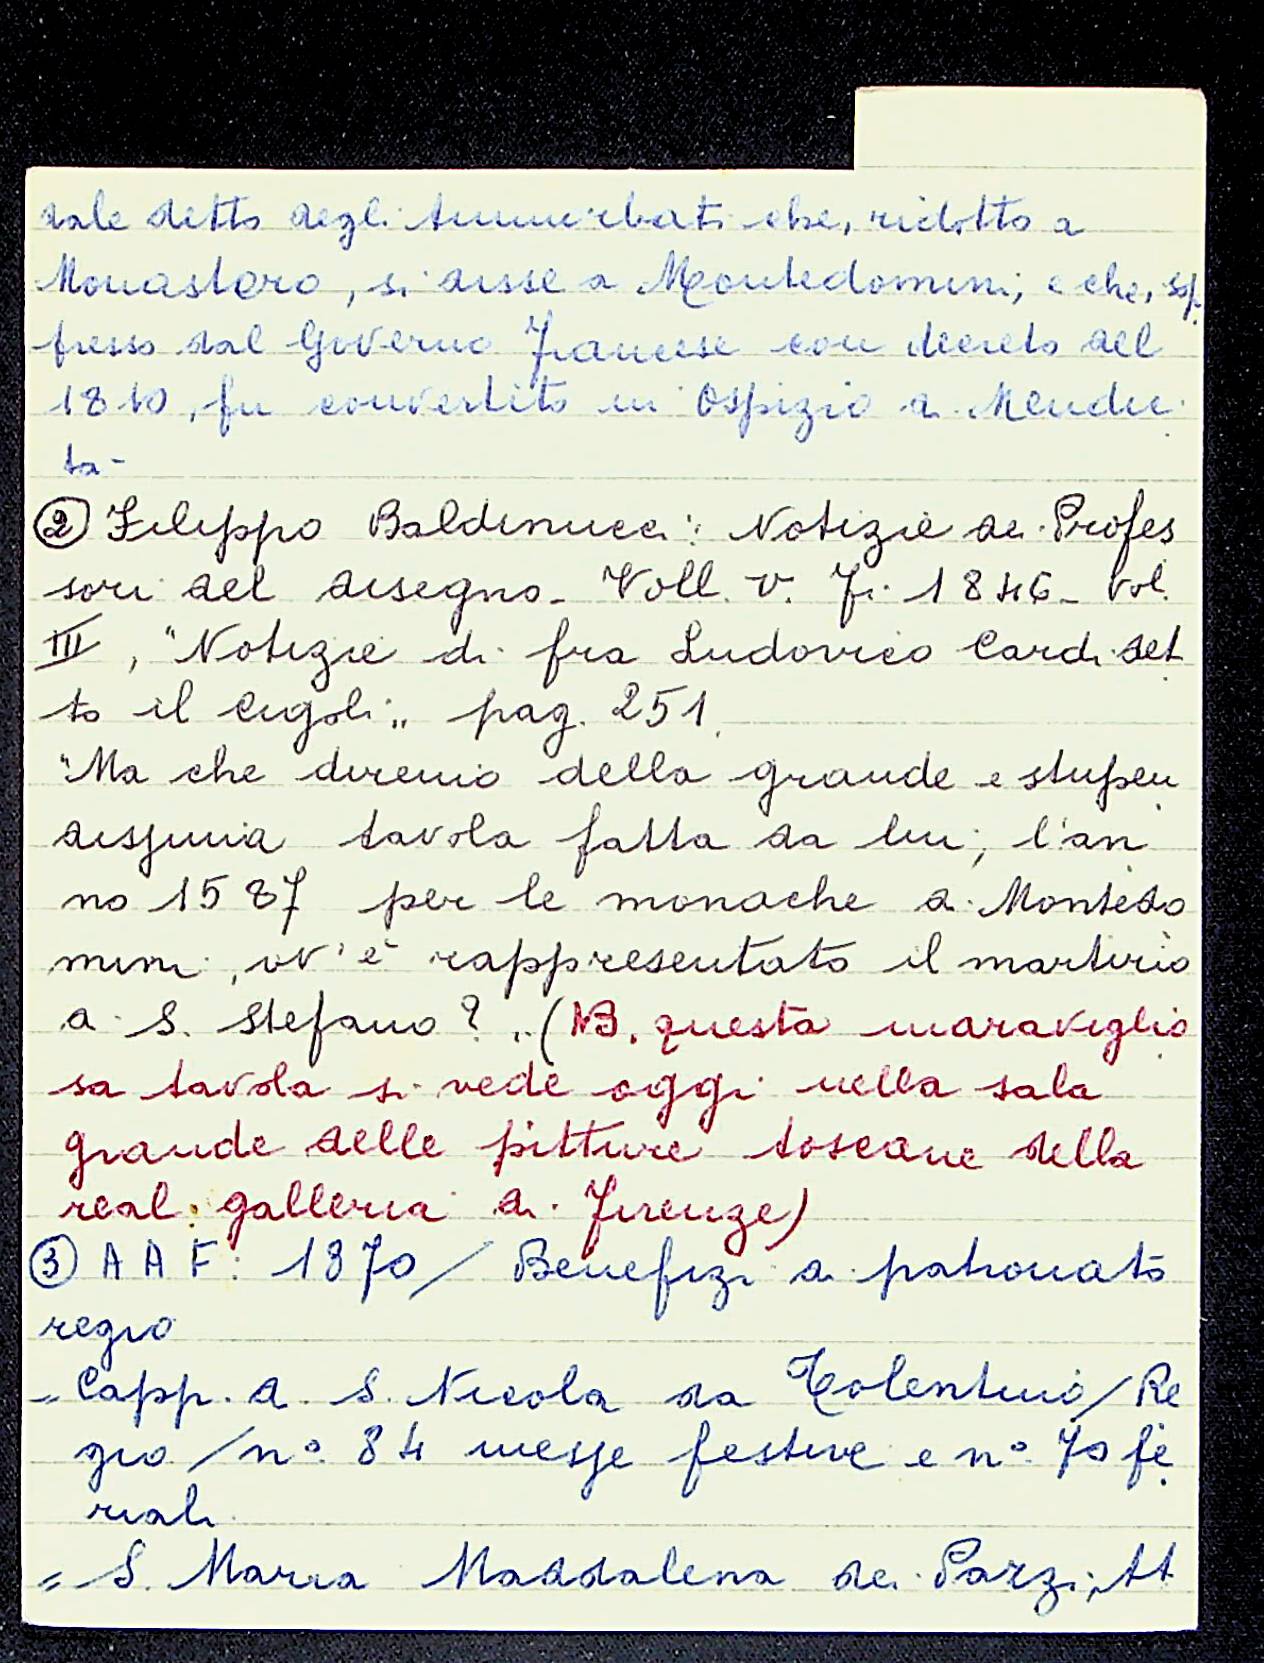 dale detto degli Ammorbati che, ridotto a
Monastero, si disse a Montedomini; e che, sop
presso dal Governo Francese con decreto del
1810, fu convertito in Ospizio di Mendici
tà-
② Filippo Baldinucci: Notizie dei Profes
sori del disegno- Voll. V. Fi. 1846- Vol.
III, "Notizie di fra Ludovico Cardi det
to il Cigoli„ pag. 251.
"Ma che diremo della grande e stupen
dissima tavola fatta da lui, l'an
no 1587 per le monache di Montedo
mini, ov'è rappresentato il martirio
di S. Stefano?„ (NB. questa maraviglio
sa tavola si vede oggi nella sala
grande delle pitture toscane della
real galleria di Firenze)
③ AAF: 1870/ Benefizi di patronato
regio
= Capp. di S. Nicola da Tolentino/Re
gio/n° 84 messe festive e n° 70 fe
riali.
= S. Maria Maddalena dei Pazzi, tt